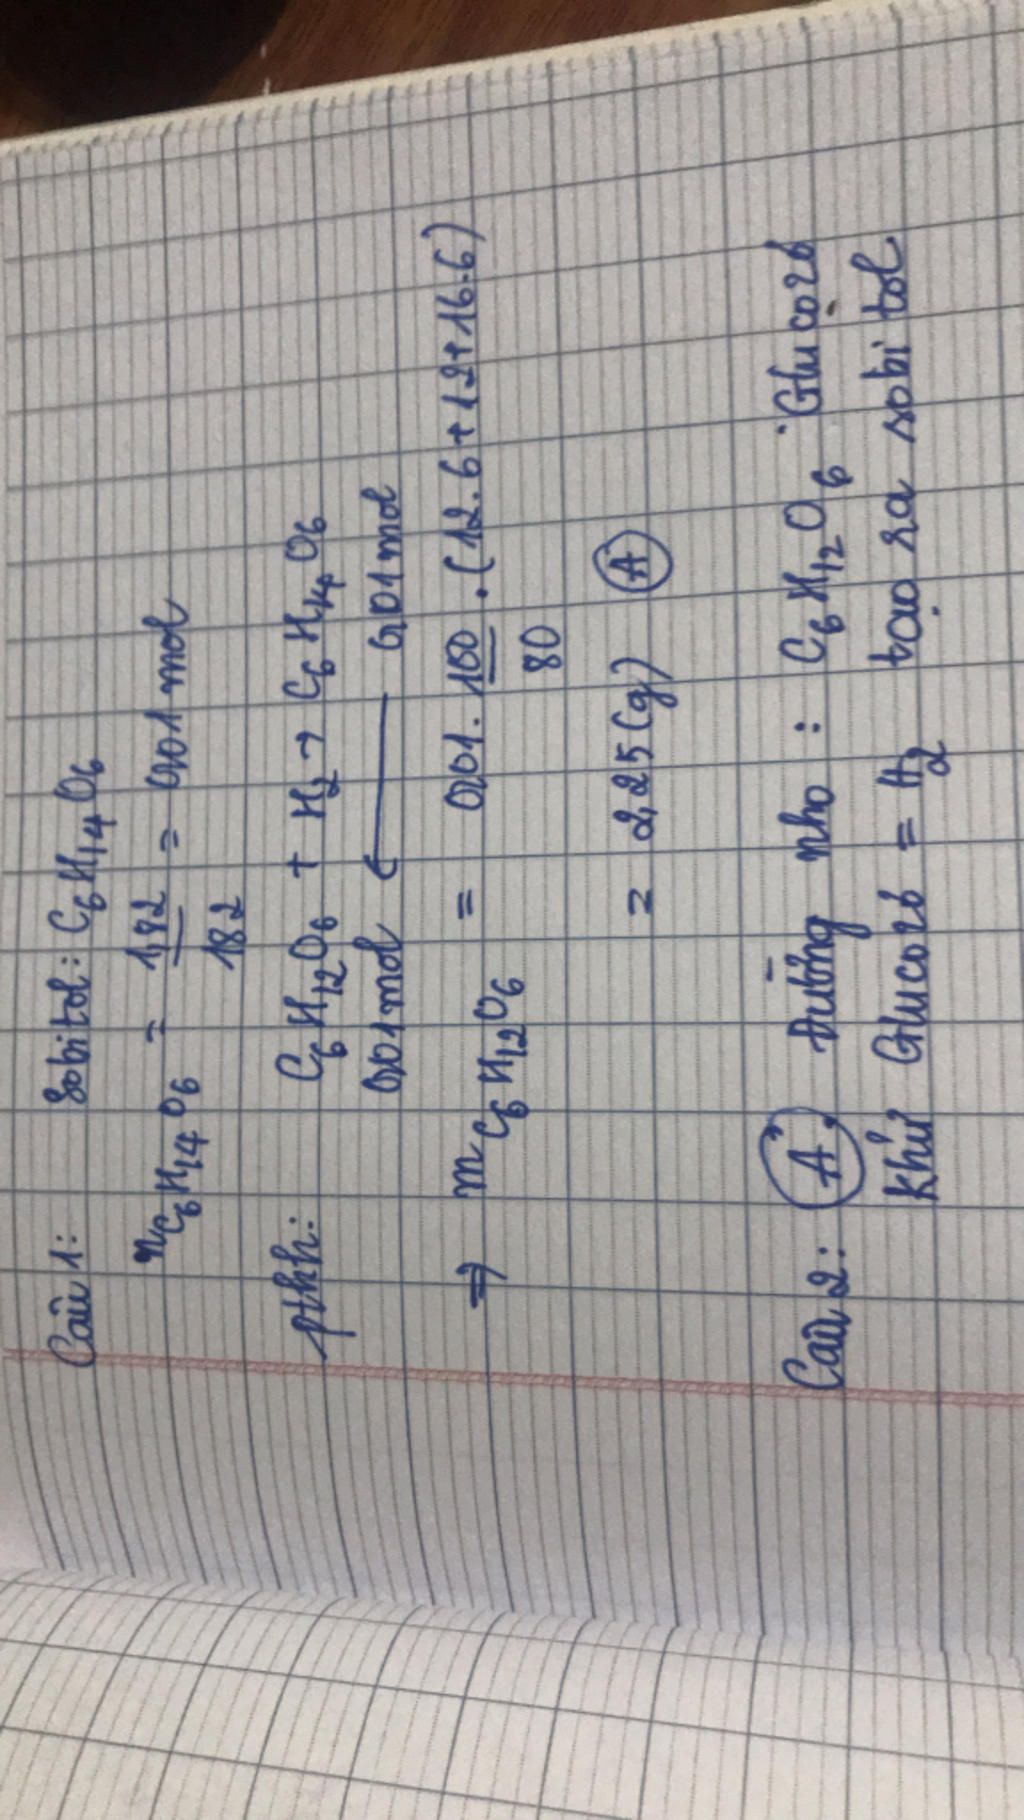 Câu 1: Sobitol: C6H14O6
nC6H14O6 = 1,82/182 = 0,01 mol
pthh: C6H12O6 + H2 → C6H14O6
0,01 mol ← 0,01 mol
⇒ mC6H12O6 = 0,01 . 100/80 . (12.6+12+16.6)
= 2,25 (g) (A)
Câu 2: (A), Đường nho : C6H12O6 Glucozơ
khử Glucozơ = H2 tạo ra sobitol